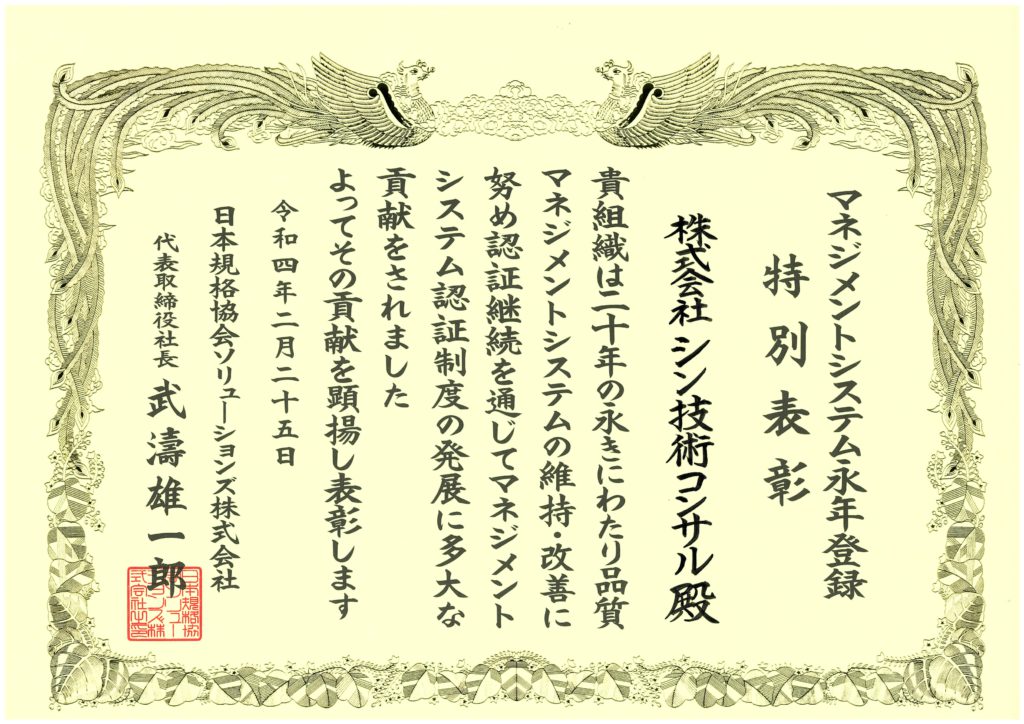 マネジメントシステム永年登録
特別表彰
株式会社 シン技術コンサル殿
貴組織は二十年の永きにわたり品質
マネジメントシステムの維持・改善に
努め認証継続を通じてマネジメント
システム認証制度の発展に多大な
貢献をされました
よってその貢献を顕揚し表彰します
令和四年二月二十五日
日本規格協会ソリューションズ株式会社
代表取締役社長 武濤雄一郎
日本規格協
会ソリュー
ションズ株
式会社之印